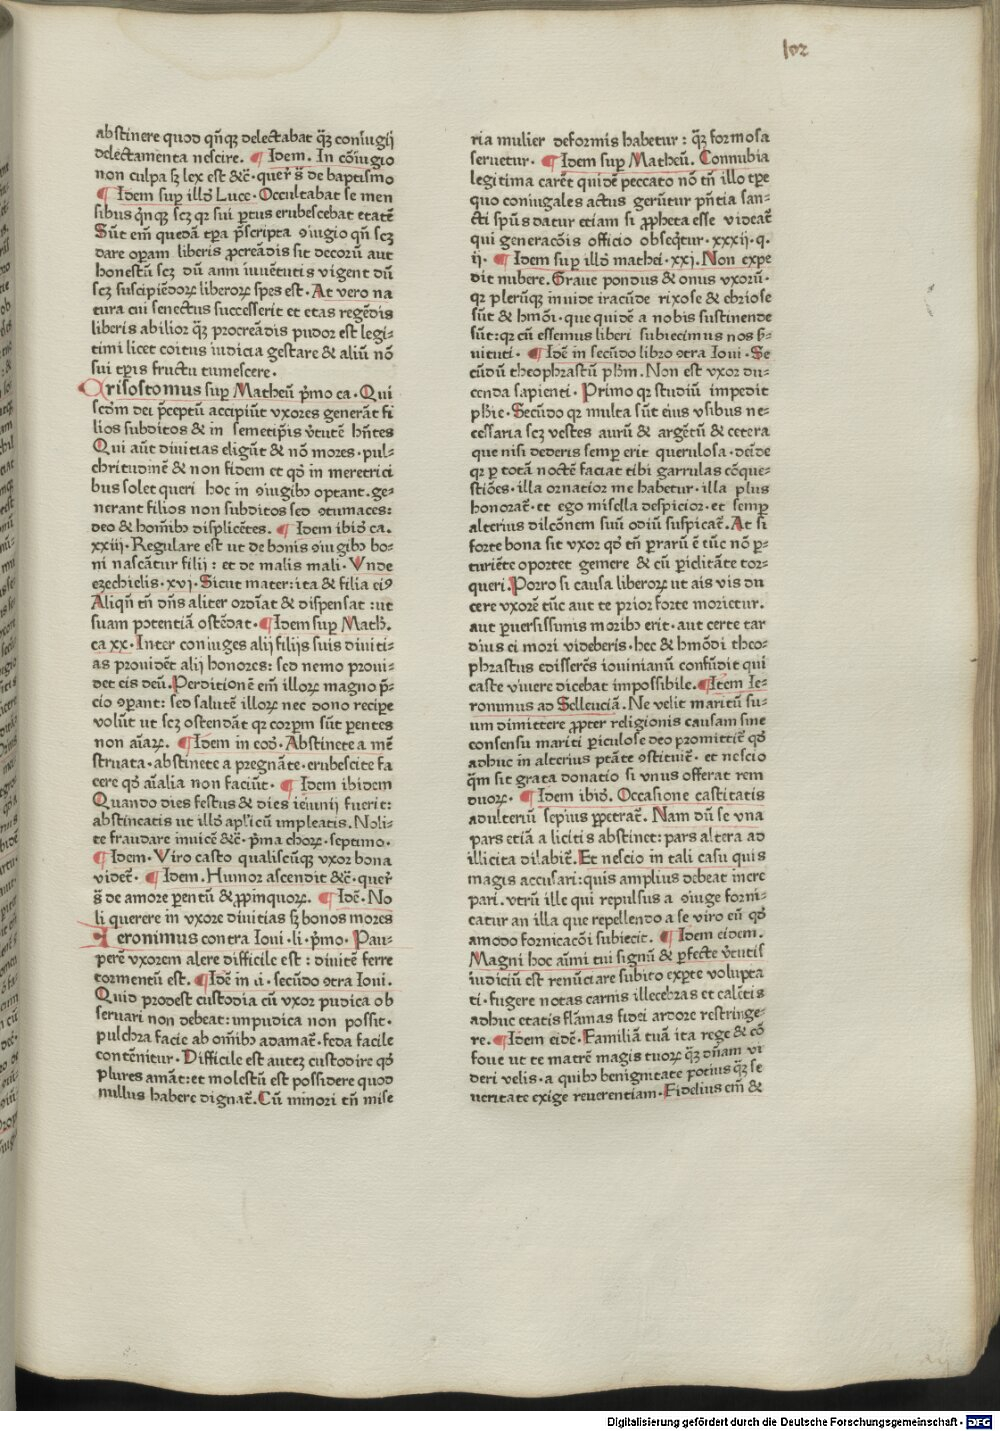 102
abstinere quod qñqꝫ delectabat q̃ꝫ coniugij
delectamenta nescire. ¶ Idem. In cõiugio
non culpa sꝫ lex est &c̃· quer̃ s̃ de baptismo
¶ Idem suꝑ illđ Luce· Occultabat se men
sibus q̃nqꝫ scꝫ qꝛ sui ꝑtus erubescebat etatẽ
Sũt em̃ quedã tꝑa p̃scripta ꝯiugio qñ scꝫ
dare oꝑam liberis ꝓcreãdis sit decorũ aut
honestũ scꝫ dũ anni iuuẽtutis vigent dũ
scꝫ suscipiẽdoꝝ liberoꝝ spes est· At vero na
tura cui senectus successerit et etas regẽdis
liberis abilior q̃ꝫ procreãdis pudor est legi⸗
timi licet coitus iudicia gestare & aliũ nõ
sui tꝑis fructu tumescere·
Crisostomus suꝑ Matheũ p̃mo ca· Qui
scđm dei p̃ceptũ accipiũt vxores generãt fi
lios subditos & in semetip̃is v̓tutẽ hñtes
Qui aũt diuitias eligũt & nõ mores· pul⸗
chritudinẽ & non fidem et qđ in meretrici
bus solet queri hoc in ꝯiugibꝰ optant· ge⸗
nerant filios non subditos sed ꝯtumaces:
deo & hom̃ibꝰ displicẽtes. ¶ Idem ibiđ ca.
xxiij· Regulare est ut de bonis ꝯiugibꝰ bo⸗
ni nascãtur filij : et de malis mali· Vnde
ezechielis· xvj· Sicut mater: ita & filia eiꝰ
Aliqñ tñ dñs aliter ordiat̃ & dispensat : ut
suam potentiã ostẽdat· ¶ Idem suꝑ Matħ.
ca xx· Inter coniuges alij filijs suis diuiti⸗
as prouidẽt alij honores: sed nemo proui⸗
det eis deũ. Perditionẽ em̃ illoꝝ magno p̃⸗
cio ꝯꝑant: sed salutẽ illoꝝ nec dono recipe
volũt ut scꝫ ostendãt qꝛ corpꝝm sũt parentes
non aĩaꝝ. ¶ Idem in eođ· Abstinete a mẽ
struata· abstinete a pregnãte· erubescite fa
cere qđ aĩalia non faciũt· ¶ Idem ibidem
Quando dies festus & dies ieiunij fuerit:
abstineatis ut illđ apl'icũ impleatis. Noli⸗
te fraudare inuicẽ &c̃· p̃ma choꝝ· septimo·
¶ Idem· Viro casto qualiscũqꝫ vxor bona
videt̃· ¶ Idem. Humor ascendit &c̃· quer̃
s̃ de amore ꝑentũ & ꝓpinquoꝝ. ¶ Idẽ· No
li querere in vxore diuitias sꝫ bonos mores
Ieronimus contra Ioui· li· p̃mo· Pau⸗
perẽ vxorem alere difficile est : diuitẽ ferre
tormentũ est. ¶ Idẽ in ·ii· secũdo ꝯtra Ioui.
Quid prodest custodia cũ vxor pudica ob
seruari non debeat: impudica non possit·
pulchra facie ab om̃ibꝰ adamat̃· feda facile
contẽnitur· Difficile est auteꝫ custodire qđ
plures amãt: et molestũ est possidere quod
nullus habere dignat̃. Cũ minori tñ mise
ria mulier deformis habetur : q̃ꝫ formosa
seruetur· ¶ Idem suꝑ Matheũ. Connubia
legitima carẽt quidẽ peccato nõ tñ illo tꝑe
quo coniugales actus gerũtur p̃ñtia san⸗
cti spũs datur etiam si ꝓpheta esse videat̃
qui generacõis officio obseq̃tur· xxxij· q.
ij· ¶ Idem suꝑ illđ mathei· xxj. Non expe
dit nubere. Graue pondus & onus vxorũ·
qꝛ plerũqꝫ inuide iracũde rixose & ebriose
sũt & hm̃õi· que quidẽ a nobis sustinende
sũt: qꝛ cũ essemus liberi subiecimus nos s̃⸗
uituti· ¶ Idẽ in secũdo libro ꝯtra Ioui· Se
cũdũ theophrastũ pħm. Non est vxor du⸗
cenda sapienti· Primo qꝛ studiũ impedit
pħie· Secũdo qꝛ multa sũt eius vsibus ne⸗
cessaria scꝫ vestes aurũ & argẽtũ & cetera
que nisi dederis semꝑ erit querulosa· deĩde
qꝛ ꝑ totã noctẽ faciat tibi garrulas cõque⸗
stiões· illa ornatior me habetur· illa plus
honorat̃· et ego misella despicior· et semꝑ
alterius dilc̃õnem suũ odiũ suspicat̃. At si
forte bona sit vxor qđ tñ ꝑrarũ ẽ tũc nõ ꝑ⸗
turiẽte oportet gemere & cũ ꝑiditãte tor⸗
queri. Porro si causa liberoꝝ ut ais vis du
cere vxorẽ tũc aut te prior forte morietur.
aut ꝑuersissimis moribꝰ erit· aut certe tar
dius ei mori videberis· hec & hm̃õdi theo⸗
phrastus edisserẽs iouinianũ confũdit qui
caste viuere dicebat impossibile. ¶ Item Ie⸗
ronimus ad Selleuciã. Ne velit maritũ su⸗
um dimittere ꝓpter religionis causam sine
consensu mariti ꝑiculose deo promittit̃ qđ
adhuc in alterius ptãte ꝯstituit̃· et nescio
q̃m sit grata donatio si vnus offerat rem
duoꝝ· ¶ Idem ibiđ. Occasione castitatis
adulteriũ sepius ꝑpetrat̃. Nam dũ se vna
pars etiã a licitis abstinet: pars altera ad
illicita dilabit̃. Et nescio in tali casu quis
magis accusari: quis amplius debeat incre
pari· vtrũ ille qui repulsus a ꝯiuge forni⸗
catur an illa que repellendo a se viro eũ qđ
amodo fornicacõi subiecit. ¶ Idem eidem·
Magni hoc aĩmi tui signũ & ꝑfecte v̓tutis
iudiciũ est renũciare subito exꝑte volupta
ti· fugere notas carnis illecebras et calẽtis
adhuc etatis flãmas fidei ardore restringe⸗
re. ¶ Idem eidẽ· Familiã tuã ita rege & cõ
foue ut te matrẽ magis tuoꝝ q̃ꝫ dñam vi
deri velis· a quibꝰ benignitate potius q̃ꝫ se
ueritate exige reuerentiam· Fidelius em̃ &
Digitalisierung gefördert durch die Deutsche Forschungsgemeinschaft · DFG